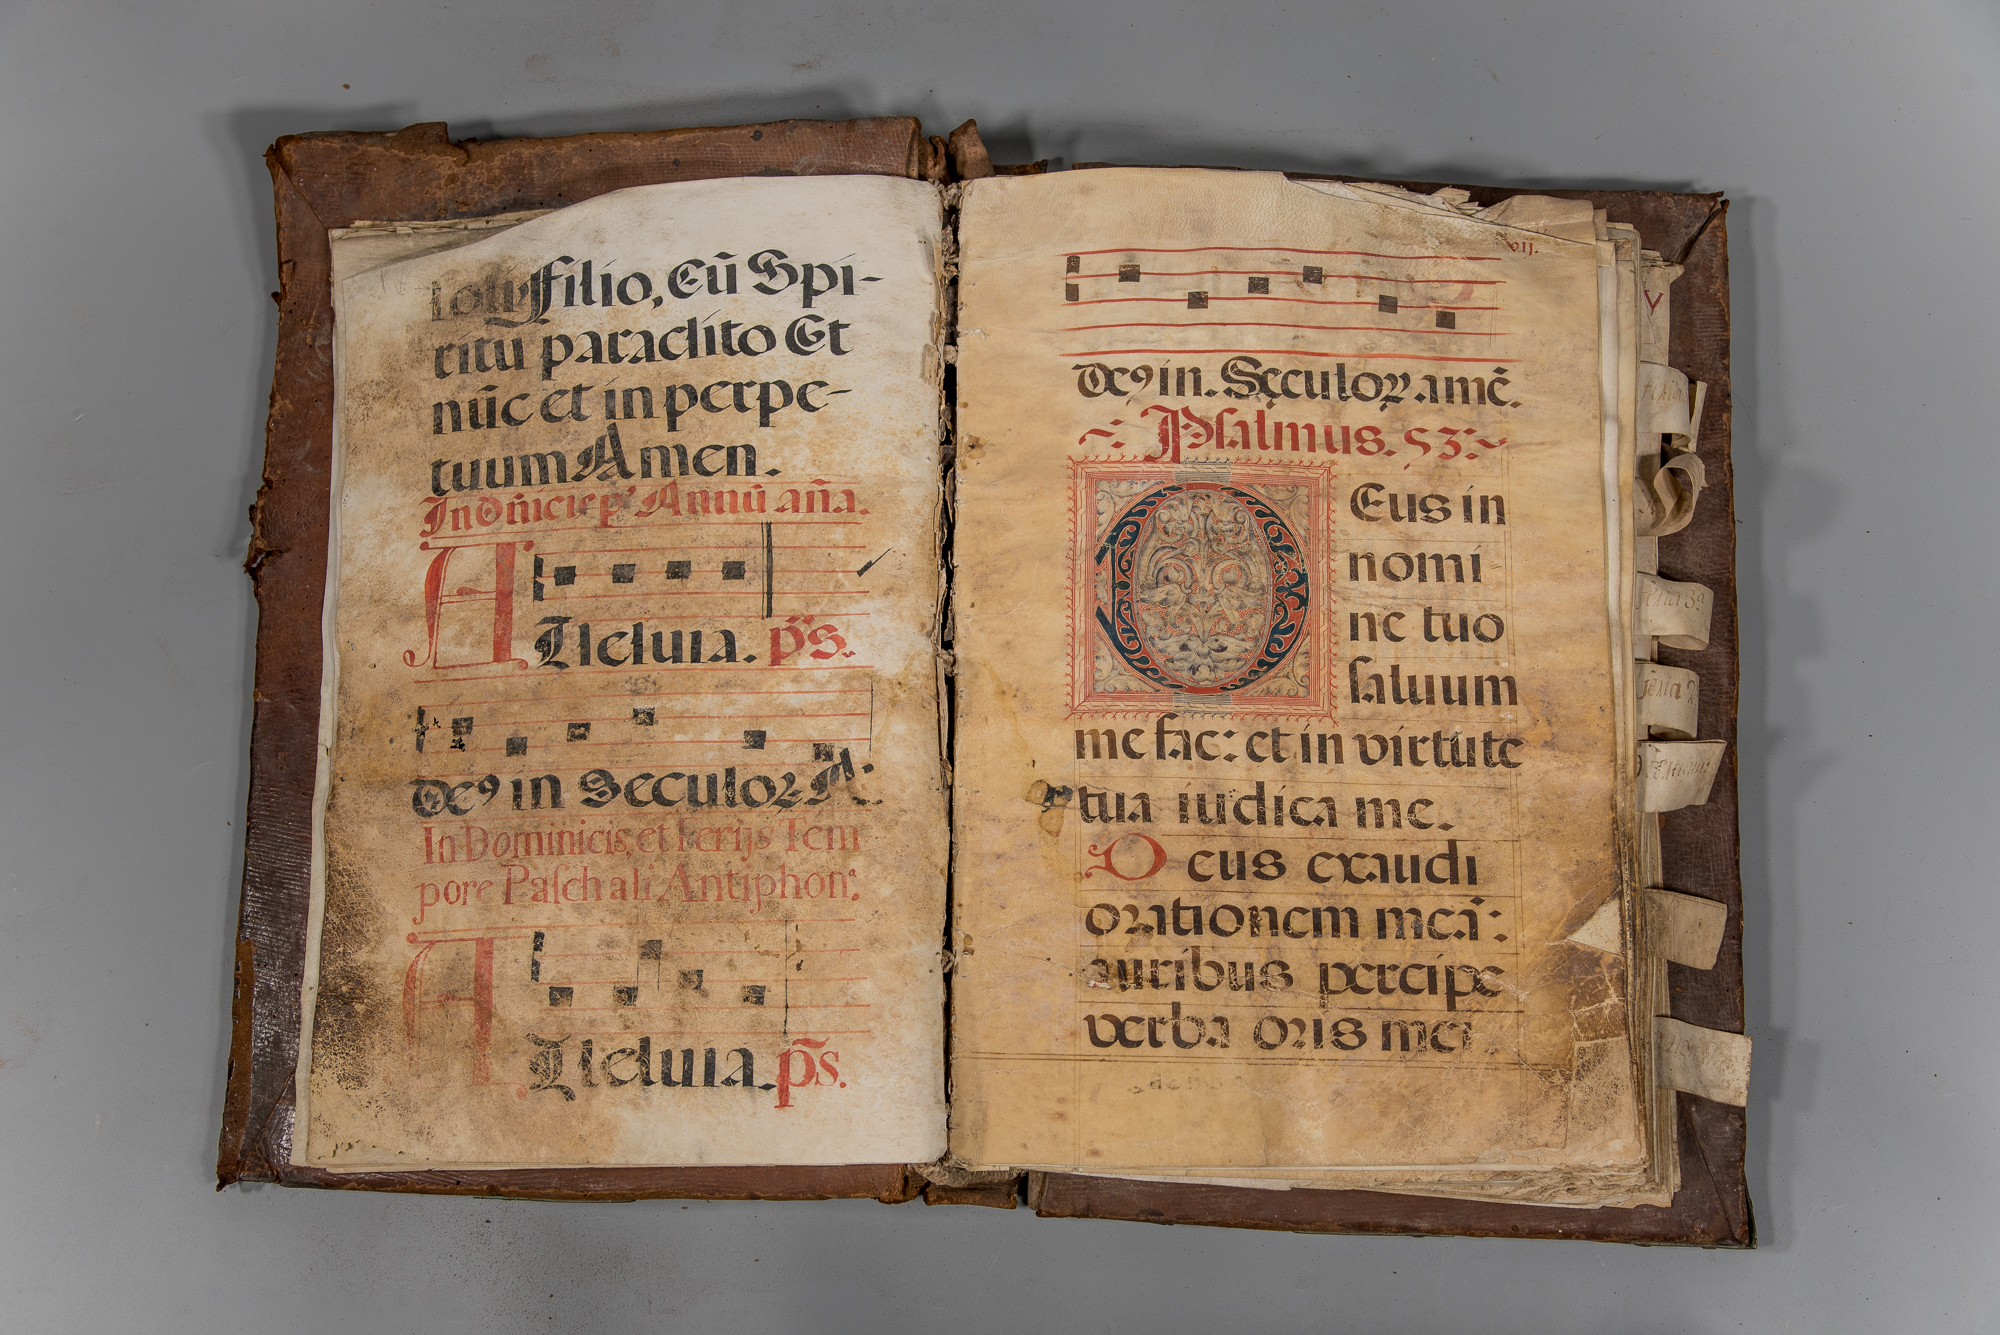 soliq Filio, Cũ Spi-
ritu paraclito Et
nũc et in perpe-
tuum Amen.
In Dñicis p Annũ aña.
Alleluia. p̃s.
De9 in Seculoꝝ A:
In Dominicis, et Ferijs Tem
pore Paschali Antiphon:
Alleluia. p̃s.
vij.
De9 in. Seculoꝝ. amẽ.
Psalmus. 53.
DEus in
nomi
ne tuo
saluum
me fac: et in virtute
tua iudica me.
Deus exaudi
orationem meã:
auribus percipe
verba oris mei.
V
feria 3ª
feria 2